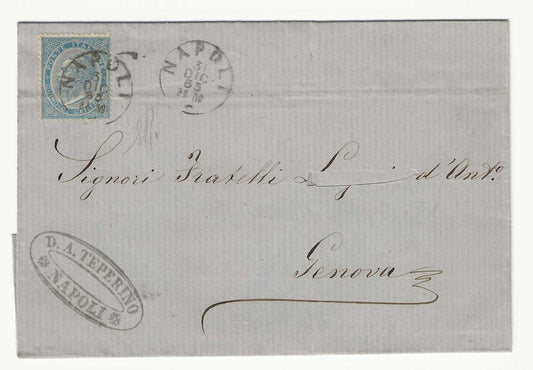 NAPOLI
3
DIC
65
NAPOLI
3
DIC
65
Signori Fratelli d'Anto
Genova
D. A. TEPERINO
NAPOLI